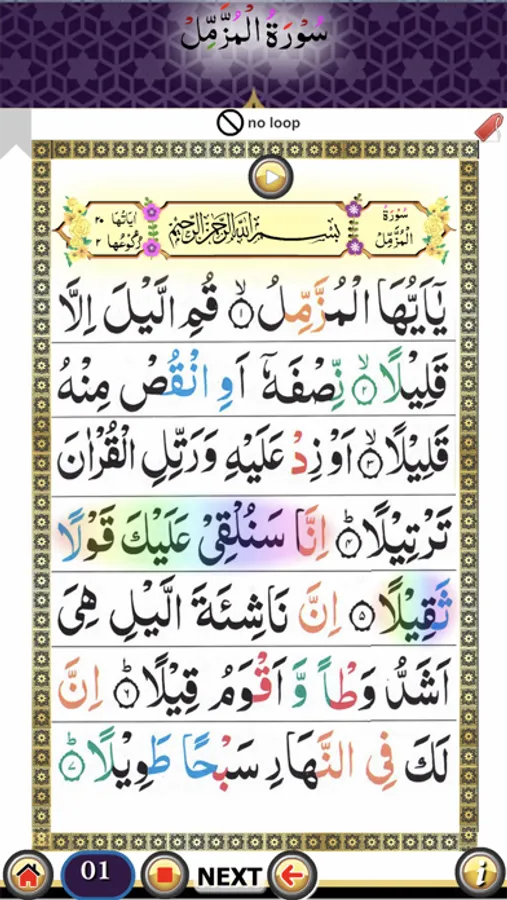 سُوْرَةُ الْمُزَّمِّلْ
no loop
سُوْرَةُ الْمُزَّمِّلُ
بِسْمِ اللّٰهِ الرَّحْمٰنِ الرَّحِيْمِ
اٰيَاتُهَا ٢٠
رُكُوْعُهَا ٢
يٰۤاَيُّهَا الْمُزَّمِّلُ ۙ‏﴿۱﴾ قُمِ الَّيْلَ اِلَّا
قَلِيْلًا ۙ‏﴿۲﴾ نِّصْفَهٗۤ اَوِ انْقُصْ مِنْهُ
قَلِيْلًا ۙ‏﴿۳﴾ اَوْ زِدْ عَلَيْهِ وَرَتِّلِ الْقُرْاٰنَ
تَرْتِيْلًا ؕ‏﴿۴﴾ اِنَّا سَنُلْقِىْ عَلَيْكَ قَوْلًا
ثَقِيْلًا ‏﴿۵﴾ اِنَّ نَاشِئَةَ الَّيْلِ هِىَ
اَشَدُّ وَطْاً وَّ اَقْوَمُ قِيْلًا ؕ‏﴿۶﴾ اِنَّ
لَكَ فِى النَّهَارِ سَبْحًا طَوِيْلًا ؕ‏﴿۷﴾
01
NEXT
i